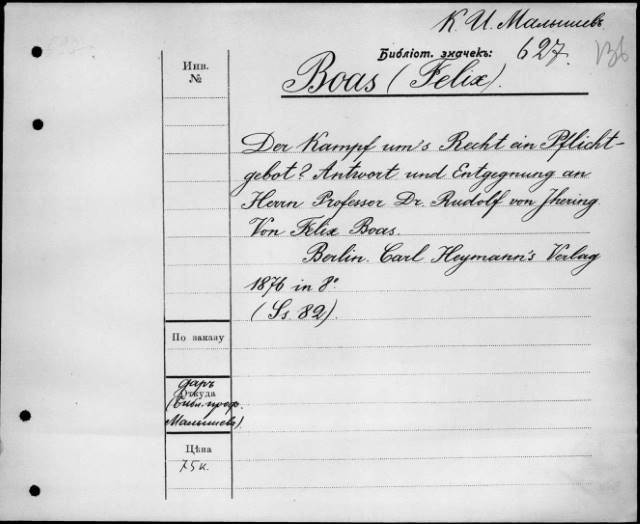 К. И. Малышевъ
Библіот. значекъ: 627.
Инв.
№
Boas (Felix).
Der Kampf um's Recht ein Pflicht-
gebot? Antwort und Entgegnung an
Herrn Professor Dr. Rudolf von Jhering.
Von Felix Boas.
Berlin. Carl Heymann's Verlag
1876 in 8°
(Ss. 82).
По заказу
даръ
Откуда
(библ. проф.
Малышева).
Цѣна
75 к.